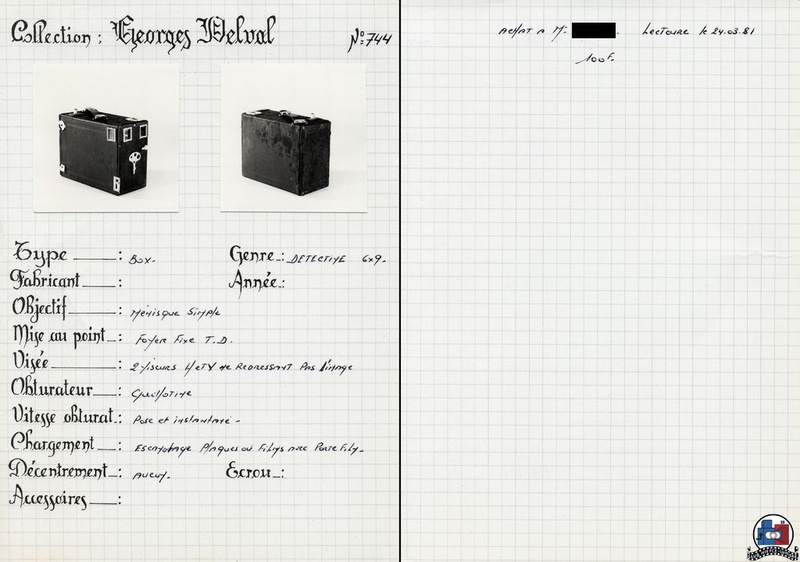 Collection : Georges Delval
N°: 744
Type : Box.
Genre : DETECTIVE 6x9.
Fabricant :
Année :
Objectif : Ménisque Simple
Mise au point : Foyer Fixe T.D.
Visée : 2 Viseurs H et V ne Redressant Pas l'image
Obturateur : Guillotine
Vitesse obturat. : Pose et instantané -
Chargement : Escamotage Plaques ou Films avec Porte Film.
Décentrement : Aucun.
Ecrou :
Accessoires :
ACHAT A Mr: . LECTOURE le 24.03.81
100F.